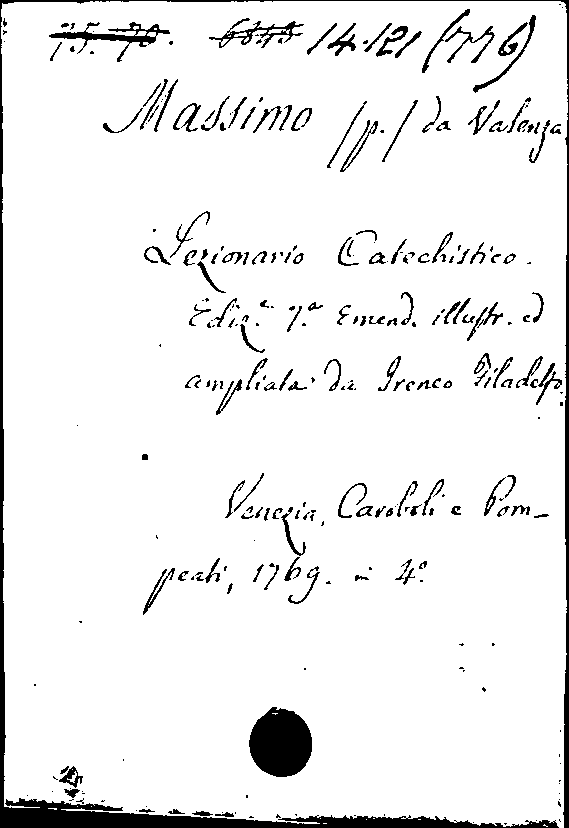 75. 70. 6845 14.121 (776)
Massimo /p./ da Valenza
Lezionario Catechistico.
Ediz.e 7.a Emend. illustr. ed
ampliata da Ireneo Filadelfo
Venezia, Caroboli e Pom-
peati, 1769. in 4.o